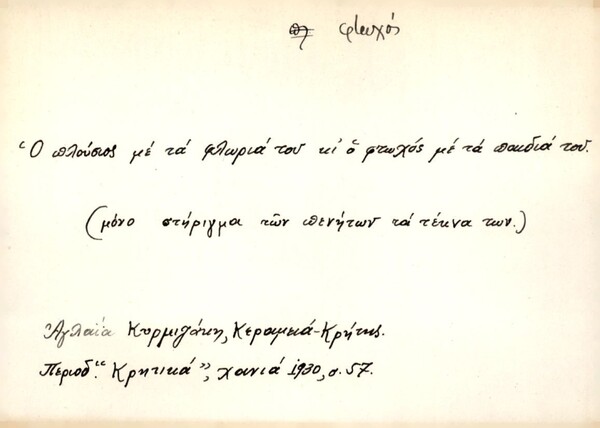 φτωχός
Ὁ πλούσιος μέ τά φλωριά του κι' ὁ φτωχός μέ τά παιδιά του.
(μόνο στήριγμα τῶν πενήτων τά τέκνα των.)
Ἀγλαΐα Κυρμιζάκη, Κεραμειά-Κρήτης.
Περιοδ. "Κρητικά", χανιά 1930, σ. 57.